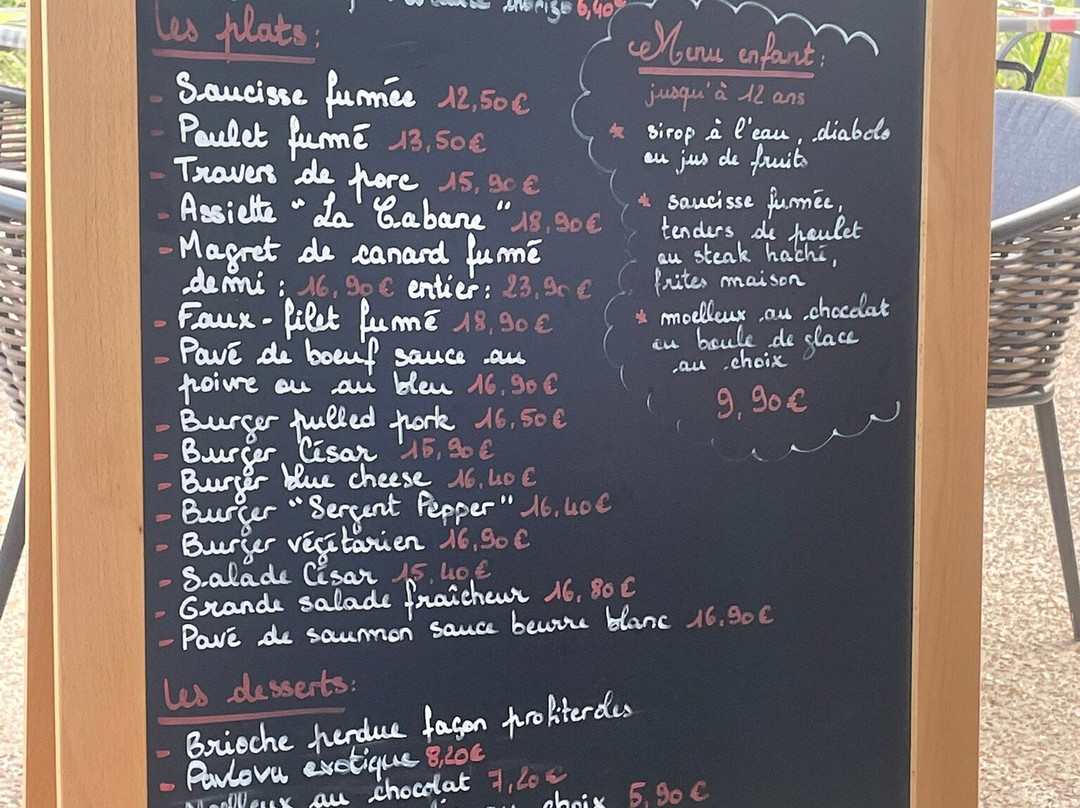 chorizo 6,40€
Les plats:
- Saucisse fumée 12,50€
- Poulet fumé 13,50€
- Travers de porc 15,90€
- Assiette "La Cabane" 18,90€
- Magret de canard fumé
demi : 16,90€ entier : 23,90€
- Faux-filet fumé 18,90€
- Pavé de boeuf sauce au
poivre ou au bleu 16,90€
- Burger pulled pork 16,50€
- Burger César 15,90€
- Burger blue cheese 16,40€
- Burger "Sergent Pepper" 16,40€
- Burger végétarien 16,90€
- Salade César 15,40€
- Grande salade fraîcheur 16,80€
- Pavé de saumon sauce beurre blanc 16,90€
Les desserts:
- Brioche perdue façon profiteroles
- Pavlova exotique 8,20€
Moelleux au chocolat 7,20€
au choix 5,90€
Menu enfant:
jusqu'à 12 ans
* sirop à l'eau, diabolo
ou jus de fruits
* saucisse fumée,
tenders de poulet
ou steak haché,
frites maison
* moelleux au chocolat
ou boule de glace
au choix
9,90€